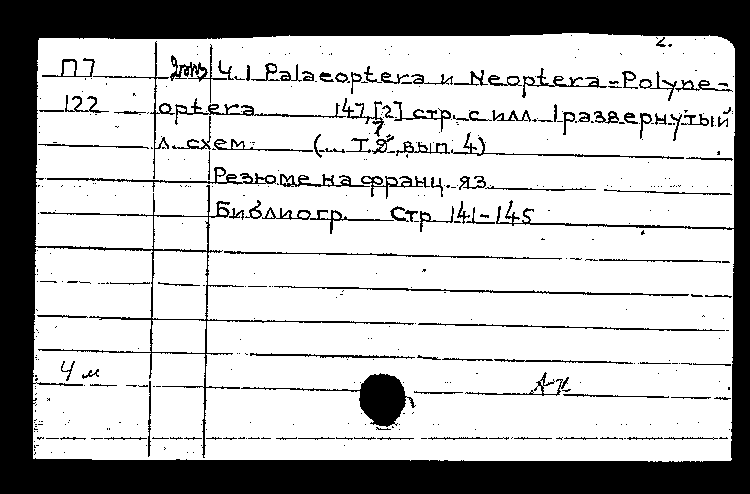 2.
П7 Ч. 1 Palaeoptera и Neoptera-Polyne-
122 optera 147,[2] стр. с илл. 1 развернутый
7
л. схем. (... Т. 8, вып. 4)
Резюме на франц. яз.
Библиогр. Стр 141-145
4 м